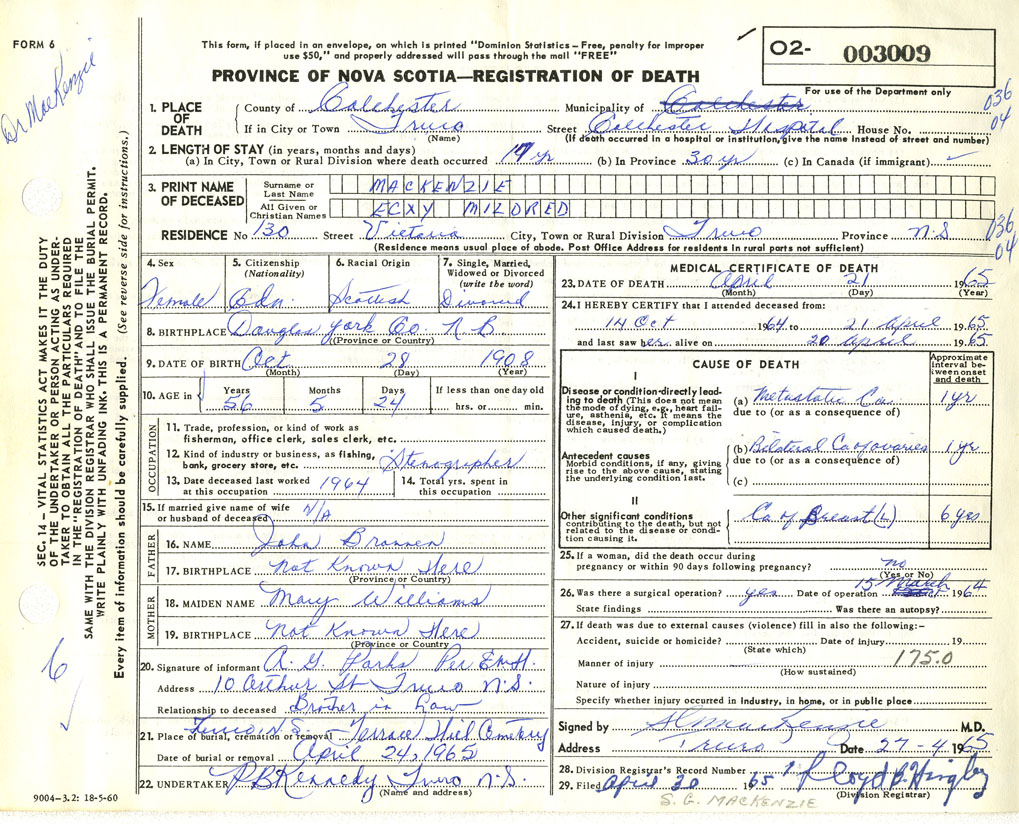 FORM 6
This form, if placed in an envelope, on which is printed "Dominion Statistics – Free, penalty for improper
use $50," and properly addressed will pass through the mail "FREE"
PROVINCE OF NOVA SCOTIA—REGISTRATION OF DEATH
O2- 003009
For use of the Department only
Dr MacKenzie
036
04
1. PLACE OF DEATH
County of Colchester Municipality of Colchester
If in City or Town Truro Street Colchester Hospital House No.
(Name) (If death occurred in a hospital or institution, give the name instead of street and number)
2. LENGTH OF STAY (in years, months and days)
(a) In City, Town or Rural Division where death occurred 17 yr (b) In Province 30 yr (c) In Canada (if immigrant)
3. PRINT NAME OF DECEASED
Surname or Last Name MACKENZIE
All Given or Christian Names ECXY MILDRED
RESIDENCE No 130 Street Victoria City, Town or Rural Division Truro Province N.S
(Residence means usual place of abode. Post Office Address for residents in rural parts not sufficient)
036
04
4. Sex Female
5. Citizenship (Nationality) Cdn.
6. Racial Origin Scottish
7. Single, Married, Widowed or Divorced (write the word) Divorced
8. BIRTHPLACE Douglas York Co. N B
(Province or Country)
9. DATE OF BIRTH Oct 28 1908
(Month) (Day) (Year)
10. AGE in Years 56 Months 5 Days 24 If less than one day old hrs. or min.
OCCUPATION
11. Trade, profession, or kind of work as fisherman, office clerk, sales clerk, etc.
12. Kind of industry or business, as fishing, bank, grocery store, etc. Stenographer
13. Date deceased last worked at this occupation 1964
14. Total yrs. spent in this occupation
15. If married give name of wife or husband of deceased N/A
FATHER
16. NAME John Brannen
17. BIRTHPLACE Not Known Here
(Province or Country)
MOTHER
18. MAIDEN NAME Mary Williams
19. BIRTHPLACE Not Known Here
(Province or Country)
20. Signature of informant A. G. Parks Per E.M.H.
Address 10 Arthur St Truro N.S.
Relationship to deceased Brother in Law
21. Place of burial, cremation or removal Truro N.S. Terrace Hill Cemetery
Date of burial or removal April 24, 1965
22. UNDERTAKER P B Kennedy Truro N.S.
(Name and address)
MEDICAL CERTIFICATE OF DEATH
23. DATE OF DEATH April 21 1965
(Month) (Day) (Year)
24. I HEREBY CERTIFY that I attended deceased from:
14 Oct 1964 to 21 April 1965
and last saw her alive on 20 April 1965
CAUSE OF DEATH
Approximate interval between onset and death
I
Disease or condition directly leading to death (This does not mean the mode of dying, e.g., heart failure, asthenia, etc. It means the disease, injury, or complication which caused death.)
(a) Metastatic Ca. 1 yr
due to (or as a consequence of)
Antecedent causes
Morbid conditions, if any, giving rise to the above cause, stating the underlying condition last.
(b) Bilateral Ca of ovaries 1 yr
due to (or as a consequence of)
(c)
II
Other significant conditions contributing to the death, but not related to the disease or condition causing it.
Ca of Breast (L) 6 yrs
25. If a woman, did the death occur during pregnancy or within 90 days following pregnancy? no
(Yes or No)
26. Was there a surgical operation? yes Date of operation 15 March 1964
State findings Was there an autopsy?
27. If death was due to external causes (violence) fill in also the following:-
Accident, suicide or homicide? Date of injury 19
(State which)
Manner of injury 175.0
(How sustained)
Nature of injury
Specify whether injury occurred in industry, in home, or in public place
Signed by S G MacKenzie M.D.
Address Truro Date 27-4 1965
28. Division Registrar's Record Number
29. Filed April 30 1965 Lloyd B. Hingley
(Division Registrar)
S. G. MACKENZIE
9004-3.2: 18-5-60
SEC. 14 – VITAL STATISTICS ACT MAKES IT THE DUTY
OF THE UNDERTAKER OR PERSON ACTING AS UNDER-
TAKER TO OBTAIN ALL THE PARTICULARS REQUIRED
IN THE "REGISTRATION OF DEATH" AND TO FILE THE
SAME WITH THE DIVISION REGISTRAR WHO SHALL ISSUE THE BURIAL PERMIT.
WRITE PLAINLY WITH UNFADING INK. THIS IS A PERMANENT RECORD.
Every item of information should be carefully supplied. (See reverse side for instructions.)
6